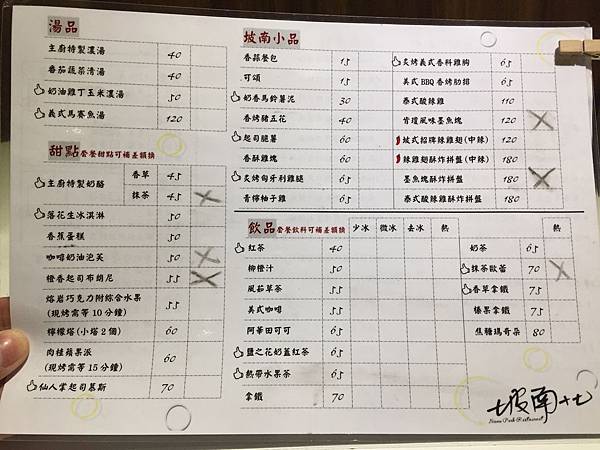 湯品
主廚特製濃湯 40
番茄蔬菜清湯 40
奶油雞丁玉米濃湯 50
義式馬賽魚湯 120
甜點 套餐甜點可補差額換
主廚特製奶酪 香草 45
抹茶 45
落花生冰淇淋 50
香蕉蛋糕 50
咖啡奶油泡芙 55
橙香起司布朗尼 55
熔岩巧克力附綜合水果
(現烤需等10分鐘) 55
檸檬塔(小塔2個) 60
肉桂蘋果派
(現烤需等15分鐘) 60
仙人掌起司慕斯 70
坡南小品
香蒜餐包 15
可頌 15
奶香馬鈴薯泥 30
香烤豬五花 40
起司脆薯 60
香酥雞塊 60
炙烤匈牙利雞腿 65
青檸柚子雞 65
炙烤義式香料雞胸 65
美式BBQ香烤肋排 65
泰式酸辣雞 110
肯瓊風味墨魚塊 120
坡式招牌辣雞翅(中辣) 120
辣雞翅酥炸拼盤(中辣) 180
墨魚塊酥炸拼盤 180
泰式酸辣雞酥炸拼盤 180
飲品 套餐飲料可補差額換 少冰 微冰 去冰 熱
紅茶 40
柳橙汁 50
風茹草茶 55
美式咖啡 55
阿華田可可 65
鹽之花奶蓋紅茶 65
熱帶水果茶 65
拿鐵 70
熱
奶茶 65
抹茶歐蕾 70
香草拿鐵 75
榛果拿鐵 75
焦糖瑪奇朵 80
坡南十七